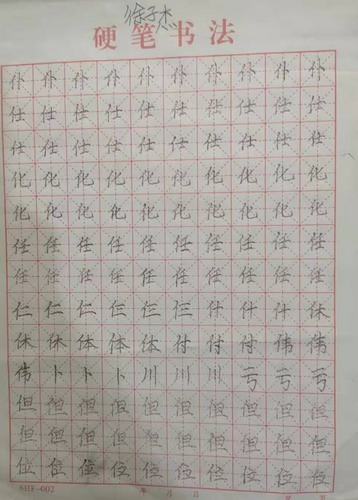 徐子杰
硬笔书法
仆仆仆仆仆仆仆仆仆仆
仕仕仕仕仕仕仕仕仕仕
仕仕仕仕仕仕仕仕仕仕
化化化化化化化化化化
化化化化化化化化化化
任任任任任任任任任任
任任任任任任任任任任
仁仁仁仁仁仨什什什休
休体体体付付付伟
伟卜卜卜川川川亏亏亏
但但但但但但但但但但
但但但但但但但但但但
位位位位位位位位位位
SHF-002 年 月 日